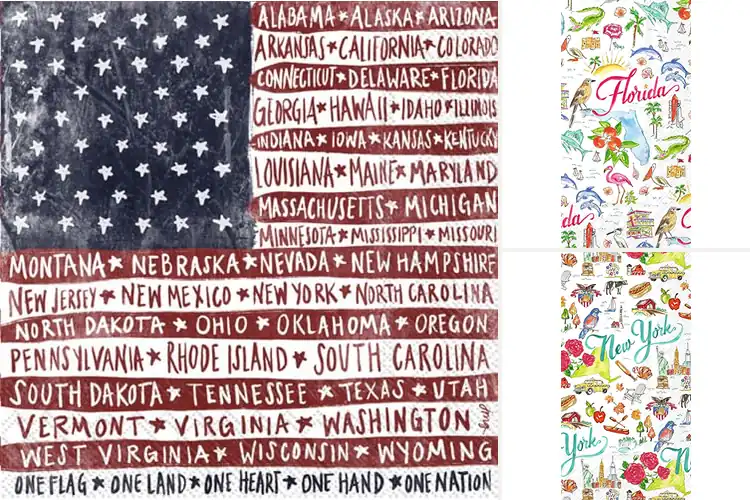 ALABAMA★ALASKA★ARIZONA
ARKANSAS★CALIFORNIA★COLORADO
CONNECTICUT★DELAWARE★FLORIDA
GEORGIA★HAWAII★IDAHO★ILLINOIS
INDIANA★IOWA★KANSAS★KENTUCKY
LOUISIANA★MAINE★MARYLAND
MASSACHUSETTS★MICHIGAN
MINNESOTA★MISSISSIPPI★MISSOURI
MONTANA★NEBRASKA★NEVADA★NEW HAMPSHIRE
NEW JERSEY★NEW MEXICO★NEW YORK★NORTH CAROLINA
NORTH DAKOTA★OHIO★OKLAHOMA★OREGON
PENNSYLVANIA★RHODE ISLAND★SOUTH CAROLINA
SOUTH DAKOTA★TENNESSEE★TEXAS★UTAH
VERMONT★VIRGINIA★WASHINGTON
WEST VIRGINIA★WISCONSIN★WYOMING
ONE FLAG★ONE LAND★ONE HEART★ONE HAND★ONE NATION
Florida
da
New York
York